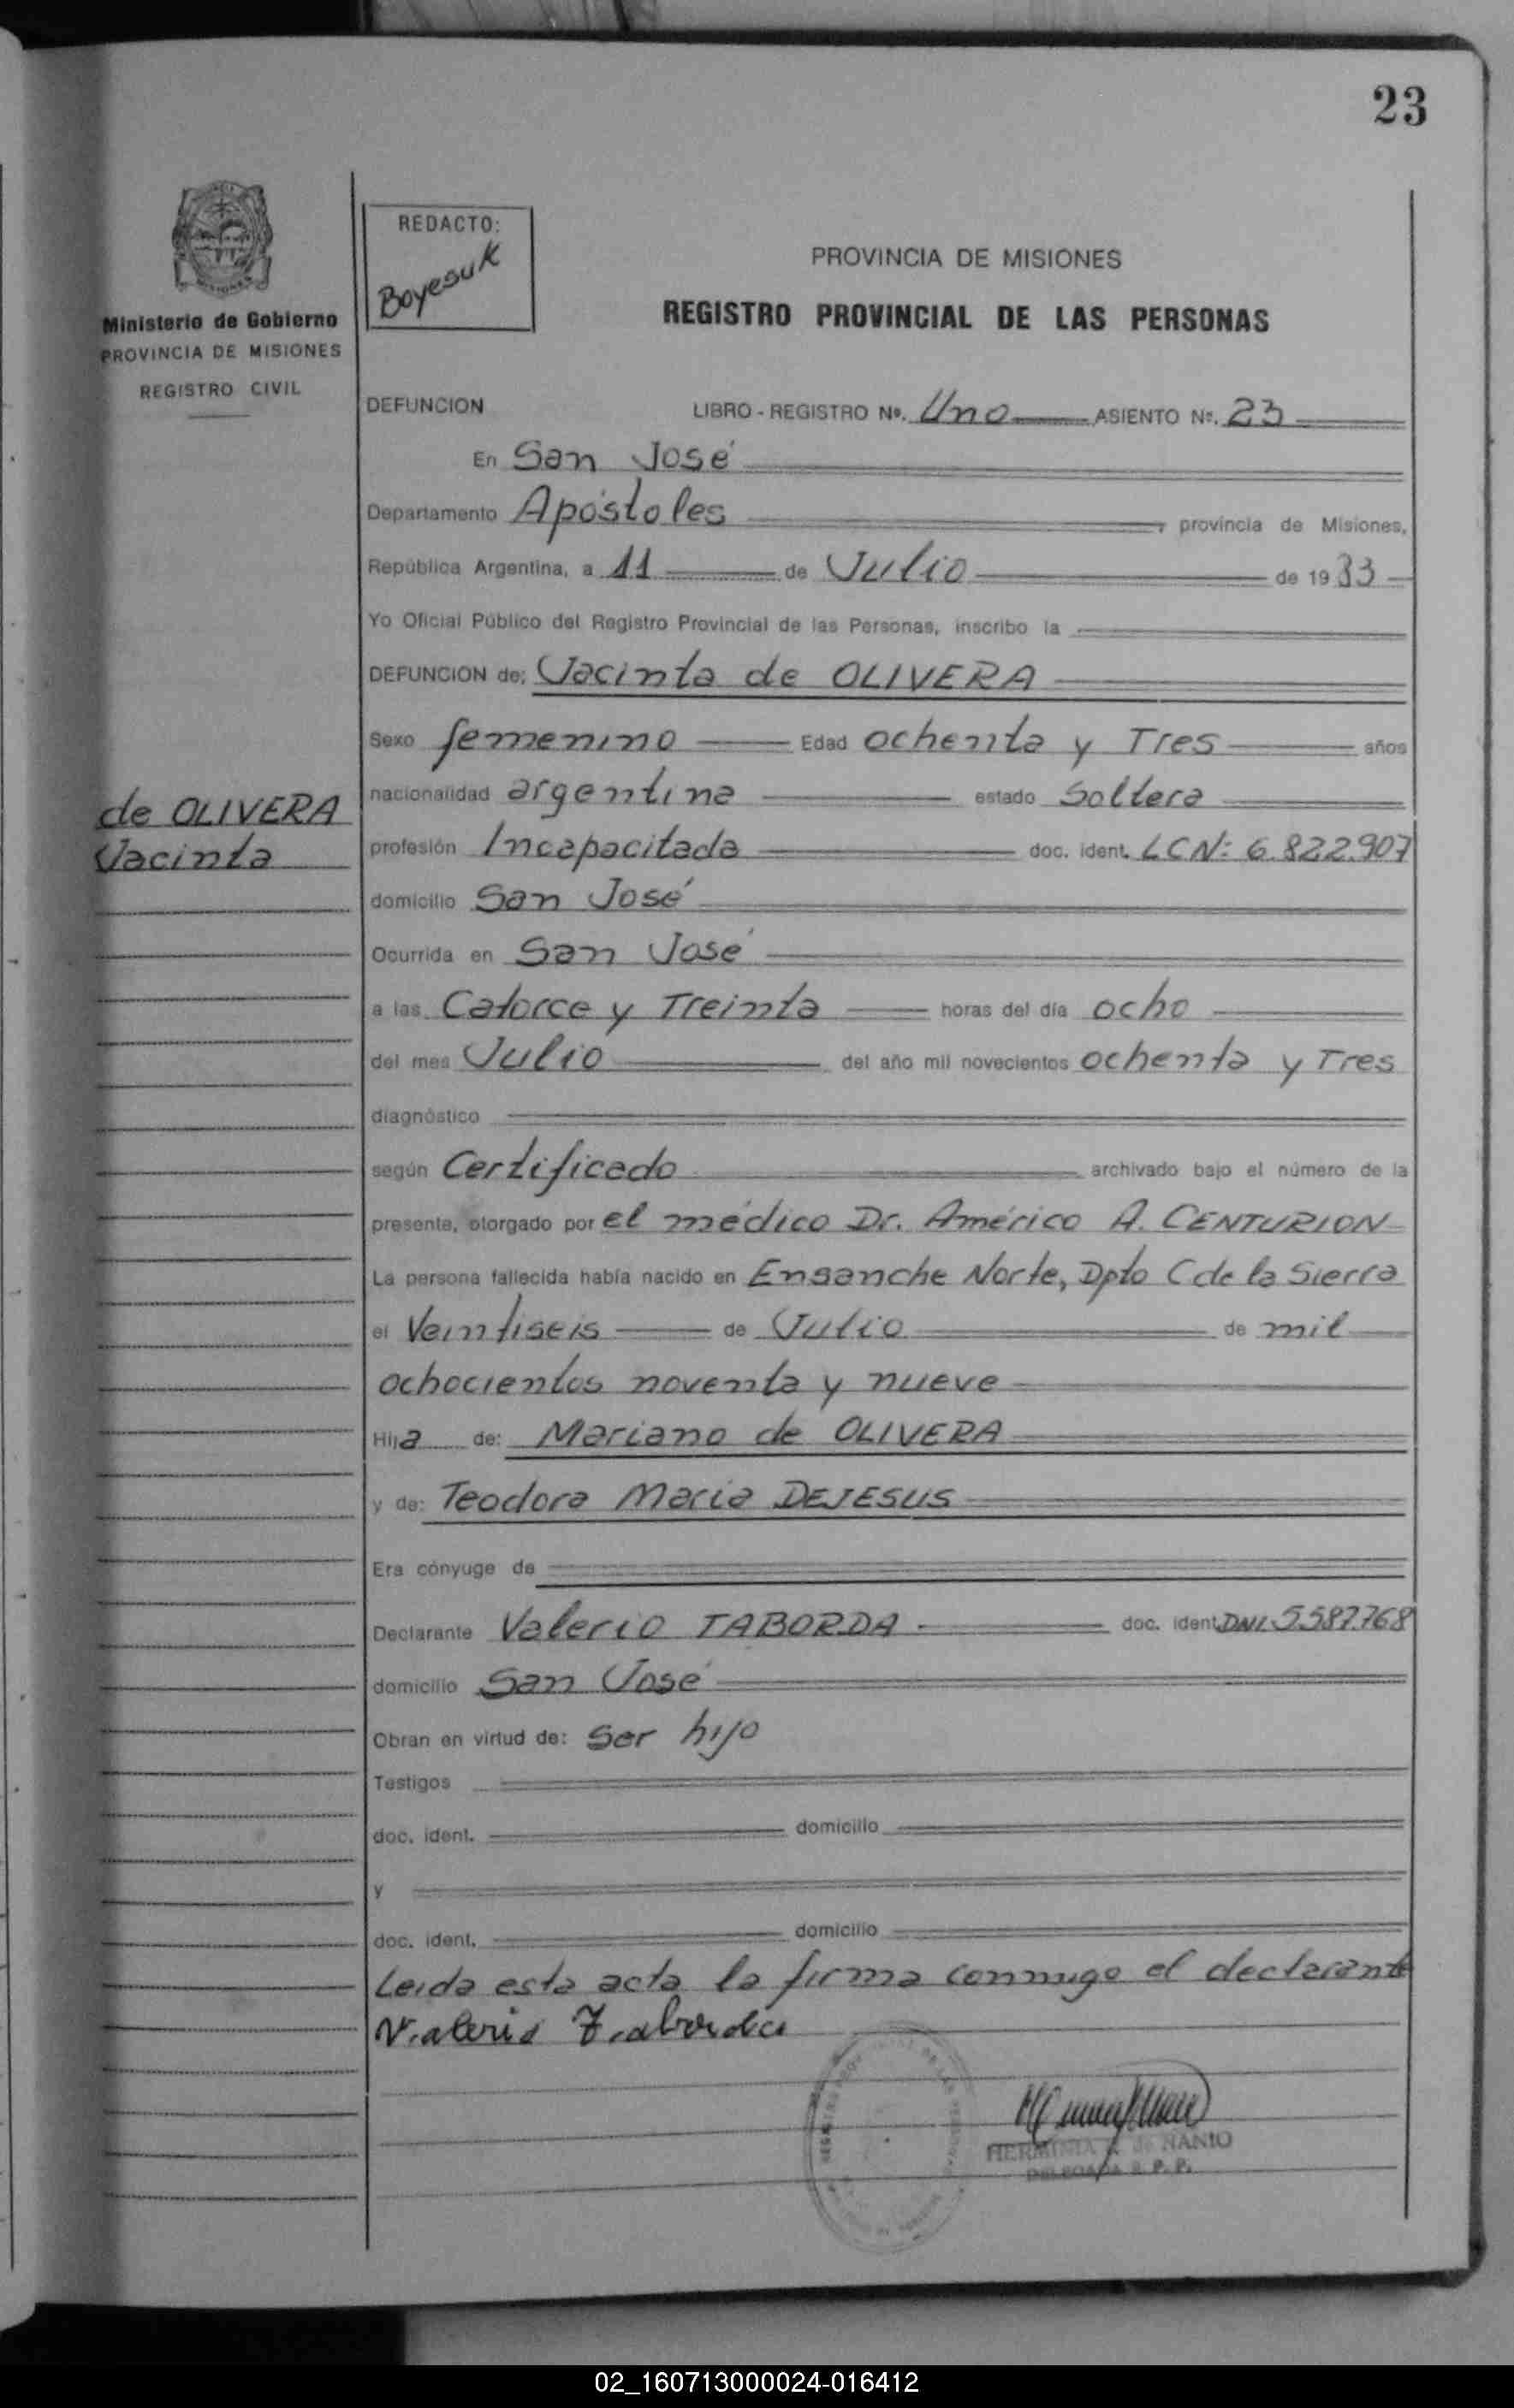 23
REDACTO:
Boyesuk
Ministerio de Gobierno
PROVINCIA DE MISIONES
REGISTRO CIVIL
PROVINCIA DE MISIONES
REGISTRO PROVINCIAL DE LAS PERSONAS
DEFUNCION LIBRO - REGISTRO Nº. Uno ASIENTO Nº. 23
En San José
Departamento Apóstoles, provincia de Misiones,
República Argentina, a 11 de Julio de 1983
Yo Oficial Público del Registro Provincial de las Personas, inscribo la
DEFUNCION de: Jacinta de OLIVERA
Sexo femenino Edad ochenta y Tres años
de OLIVERA
Jacinta
nacionalidad argentina estado Soltera
profesión Incapacitada doc. ident. LCNº 6.822.907
domicilio San José
Ocurrida en San José
a las Catorce y Treinta horas del día ocho
del mes Julio del año mil novecientos ochenta y Tres
diagnóstico
según Certificado archivado bajo el número de la
presente, otorgado por el médico Dr. Américo A. CENTURION
La persona fallecida había nacido en Ensanche Norte, Dpto C de la Sierra
el Veintiseis de Julio de mil
ochocientos noventa y nueve
Hija de: Mariano de OLIVERA
y de: Teodora Maria DEJESUS
Era cónyuge de
Declarante Valerio TABORDA doc. ident. DNI 5.587.768
domicilio San José
Obran en virtud de: Ser hijo
Testigos
doc. ident. domicilio
y
doc. ident. domicilio
Leida esta acta la firma conmigo el declarante
Valerio Taborda
HERMINIA de NANIO
DELEGADA R. P. P.
02_160713000024-016412